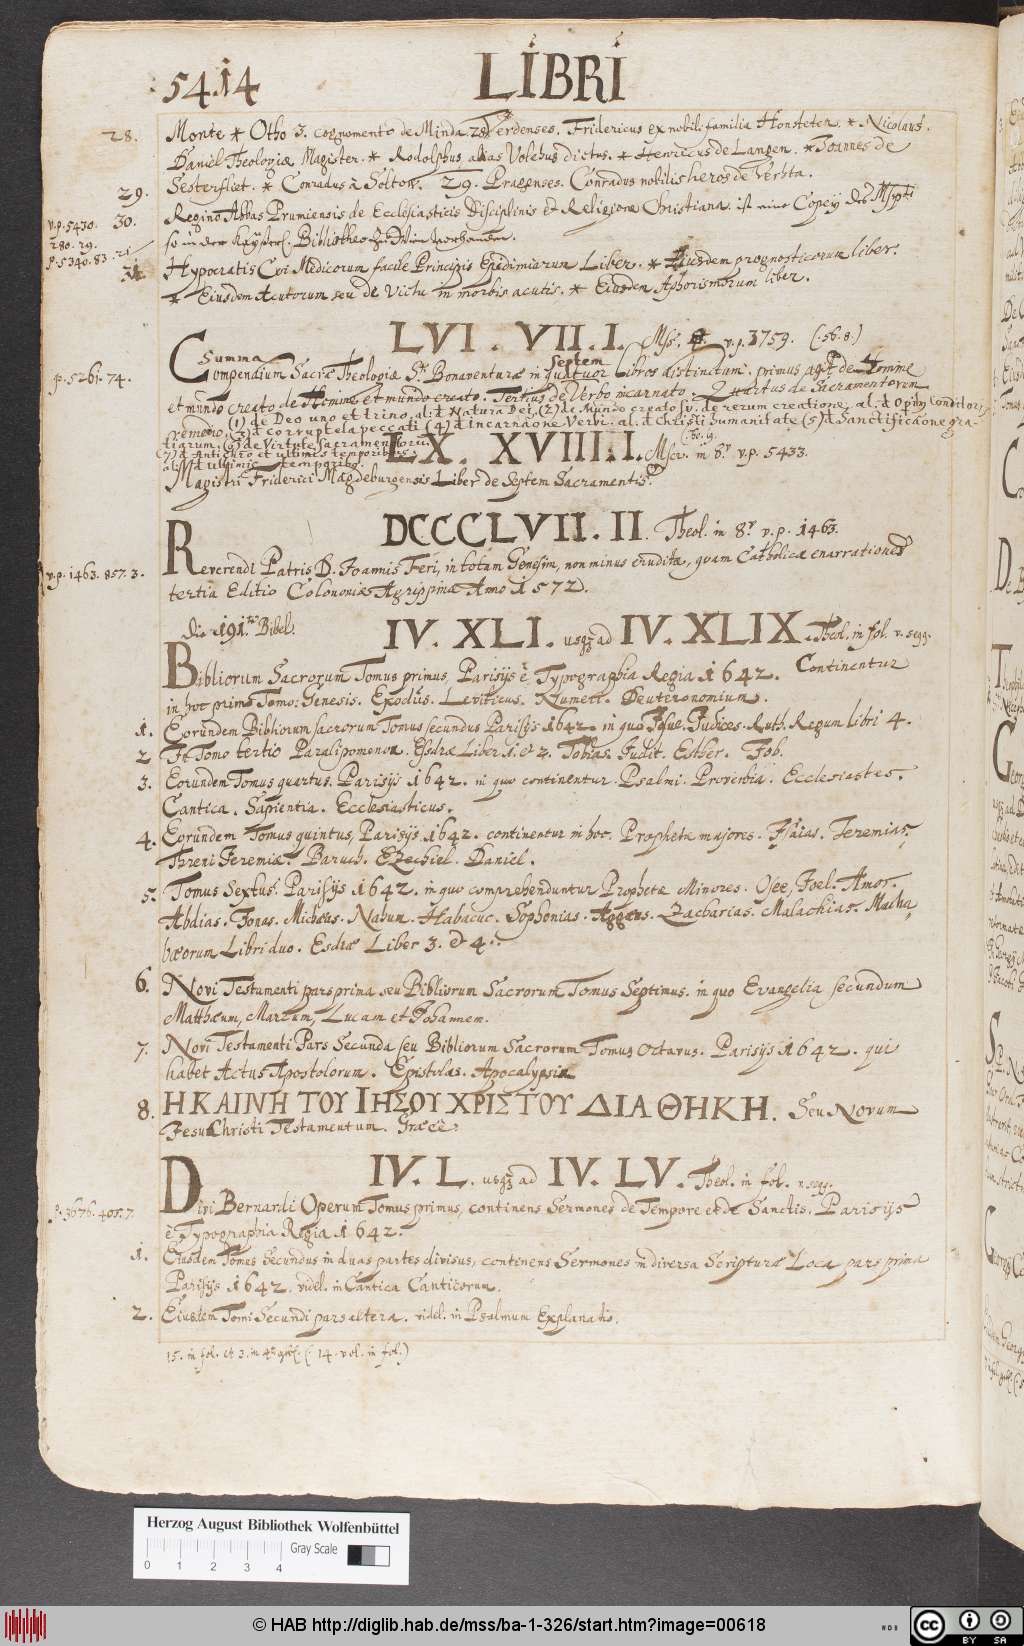 5414
LIBRI
28. Monte * Otho 3. cognomento de Minda 28 Verdenses. Fridericus ex nobili familia Honsteter. * Nicolaus.
Daniel Theologiæ Magister. * Rodolphus alias Volchus dictus. * Henricus de Langen. * Joannes de
29. Sesterfliet. * Conradus à Soltow. 29. Pragenses. Conradus nobilis heros de Vechta.
v.p. 5430. 30. Regino Abbas Prumiensis de Ecclesiasticis Disciplinis et Religione Christiana ist eine Copey des Mspti
280. 29. so in der Kayserl. Bibliothec zu Wien vorhanden.
p. 5340. 83. 21
31. Hypocratis Coi Medicorum facile Principis Epidimiarum Liber. * Eiusdem prognosticorum liber.
* Eiusdem Acutorum seu de Victu in morbis acutis. * Eiusdem Aphorismorum liber.
LVI. VII. I. Mss. v.p. 3759. (. 56. 8.)
Summa septem
p. 5261. 74. Compendium Sacræ Theologiæ St. Bonaventuræ in quatuor Libros distinctum. primus agit de Homine
et mundo creato. de Homine et mundo creato. Tertius de Verbo incarnato. Quartus de Sacramentorum
remedio. (1) de Deo uno et trino, al. d Natura Dei, (2) de Mundo creato sv. de rerum creatione, al. d Opim Conditoris
(3) d corruptela peccati (4) d incarnaone Verbi. al. d Christi humanitate (5) d Sanctificaone gra-
tiarum. (6) de Virtute Sacramentorū.
(7) d Antichro et ultimis temporibus.
al. d ultimis temporibs.
LX. XVIIII. I. Mscr. in 8r. v.p. 5433.
Magistri Friderici Magdeburgensis Liber de Septem Sacramentis.
DCCCLVII. II. Theol. in 8r. v.p. 1463.
v.p. 1463. 857. 3. Reverendi Patris D. Joannis Feri, in totam Genesim, non minus eruditæ, quam Catholicæ enarrationes
tertia Editio Coloniæ Agrippinæ Anno 1572.
Die 191.te Bibel.
IV. XLI. usq3 ad IV. XLIX. Theol. in fol. v. seqq.
Bibliorum Sacrorum Tomus primus, Parisijs è Typographia Regia 1642. Continentur
in hoc primo Tomo: Genesis. Exodus. Leviticus. Numeri. Deuteronomium.
1. Eorundem Bibliorum sacrorum Tomus secundus Parisijs 1642. in quo Josue. Judices. Ruth. Regum libri 4.
2 It. Tomo tertio Paralipomenon. Esdræ Liber 1. et 2. Tobias. Judit. Esther. Job.
3. Eorundem Tomus quartus. Parisijs 1642. in quo continentur. Psalmi. Proverbia. Ecclesiastes.
Cantica. Sapientia. Ecclesiasticus.
4. Eorundem Tomus quintus, Parisijs 1642. continentur in hoc. Prophetæ majores. Isaias. Jeremias,
Threni Jeremiæ. Baruch. Ezechiel. Daniel.
5. Tomus Sextus. Parisijs 1642. in quo comprehenduntur Prophetæ Minores. Osee, Joel. Amos.
Abdias. Jonas. Michæas. Nahum. Habacuc. Sophonias. Aggæus. Zacharias. Malachias. Macha,
bæorum Libri duo. Esdræ Liber 3. et 4.
6. Novi Testamenti pars prima seu Bibliorum Sacrorum Tomus Septimus. in quo Evangelia secundum
Matthæum, Marcum, Lucam et Johannem.
7. Novi Testamenti Pars Secunda seu Bibliorum Sacrorum Tomus Octavus. Parisijs 1642. qui
habet Actus Apostolorum. Epistolas. Apocalypsin
8. Η ΚΑΙΝΗ ΤΟΥ ΙΗΣΟΥ ΧΡΙΣΤΟΥ ΔΙΑΘΗΚΗ. Seu Novum
Jesu Christi Testamentum. Græcè.
IV. L. usq3 ad IV. LV. Theol. in fol. v. seqq.
p. 3676. 405. 7. Divi Bernardi Operum Tomus primus, continens Sermones de Tempore et de Sanctis. Parisijs
è Typographia Regia 1642.
1. Eiusdem Tomus Secundus in duas partes divisus, continens Sermones in diversa Scripturæ Loca pars prima
Parisijs 1642. videl. in Cantica Canticorum.
2. Eiusdem Tomi Secundi pars altera. videl. in Psalmum Explanatio.
15. in fol. et 3. in 4to (. 14. vol. in fol.)
Herzog August Bibliothek Wolfenbüttel
Gray Scale
0 1 2 3 4
© HAB http://diglib.hab.de/mss/ba-1-326/start.htm?image=00618
cc BY SA